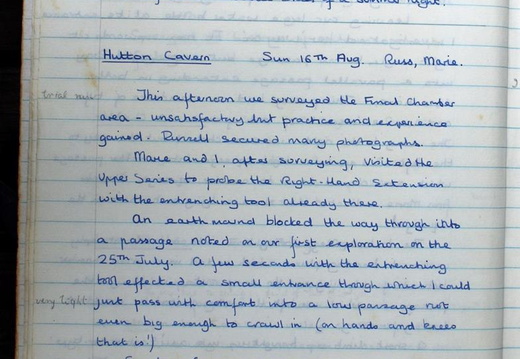 of a summer night.
Hutton Cavern Sun 16th Aug. Russ, Marie.
This afternoon we surveyed the Final Chamber
area - unsatisfactory but practice and experience
gained. Russell secured many photographs.
Marie and I, after surveying, visited the
Upper Series to probe the Right-Hand Extension
with the entrenching tool already there.
An earth mound blocked the way through into
a passage noted on our first exploration on the
25th July. A few seconds with the entrenching
tool effected a small entrance though which I could
very tight just pass with comfort into a low passage not
even big enough to crawl in (on hands and knees
that is!)